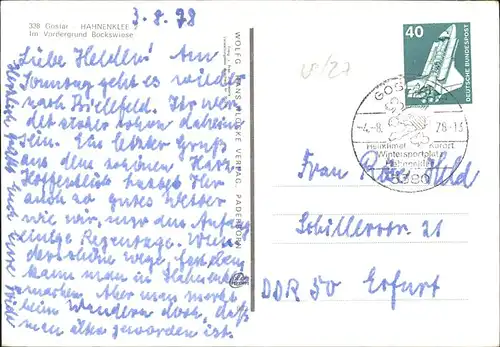 338 Goslar HAHNENKLEE
Im Vordergrund Bockswiese
3.8.78
Liebe Helden! Am
Sonntag geht es wieder
nach Bielefeld. Ihr wer-
det sicher schon daheim
sein. Ein letzter Gruß
aus dem schönen Harz.
Hoffentlich hattet Ihr
auch so gutes Wetter
wie wir, nur am Anfang
einige Regentage. Wun-
derschöne Wege, fast eben
kann man in Hahnenklee
machen. Aber man merkt
beim Wandern doch, daß
man älter geworden ist.
Herzlich grüßt Euch Eure
WOLFG. HANS KLOCKE VERLAG, PADERBORN
40
DEUTSCHE BUNDESPOST
GOSLAR
-4.-8. 78-13
Heilklimat. Kurort
Wintersportplatz
Hahnenklee
3380
Frau Held
Schillerstr. 21
DDR 50 Erfurt